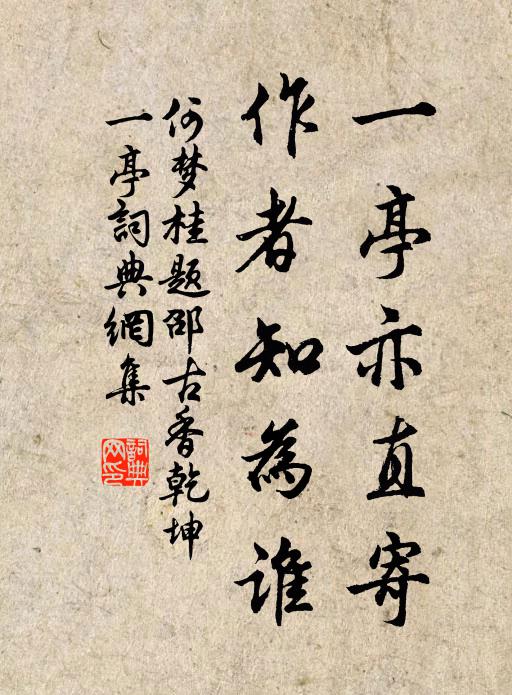 一亭亦直寄
作者知為谁
何梦桂题邵古香乾坤
一亭詞典網集
詞典网印